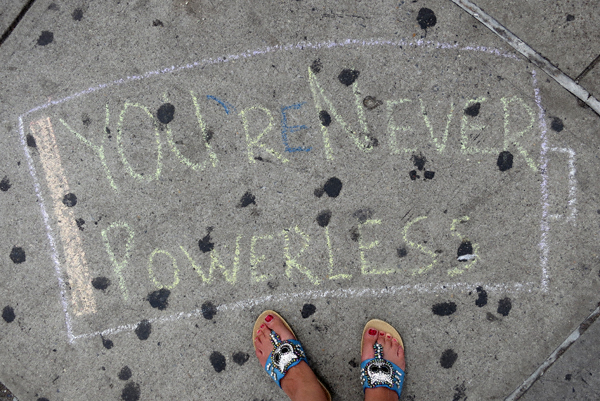 YOU'RE NEVER
POWERLESS